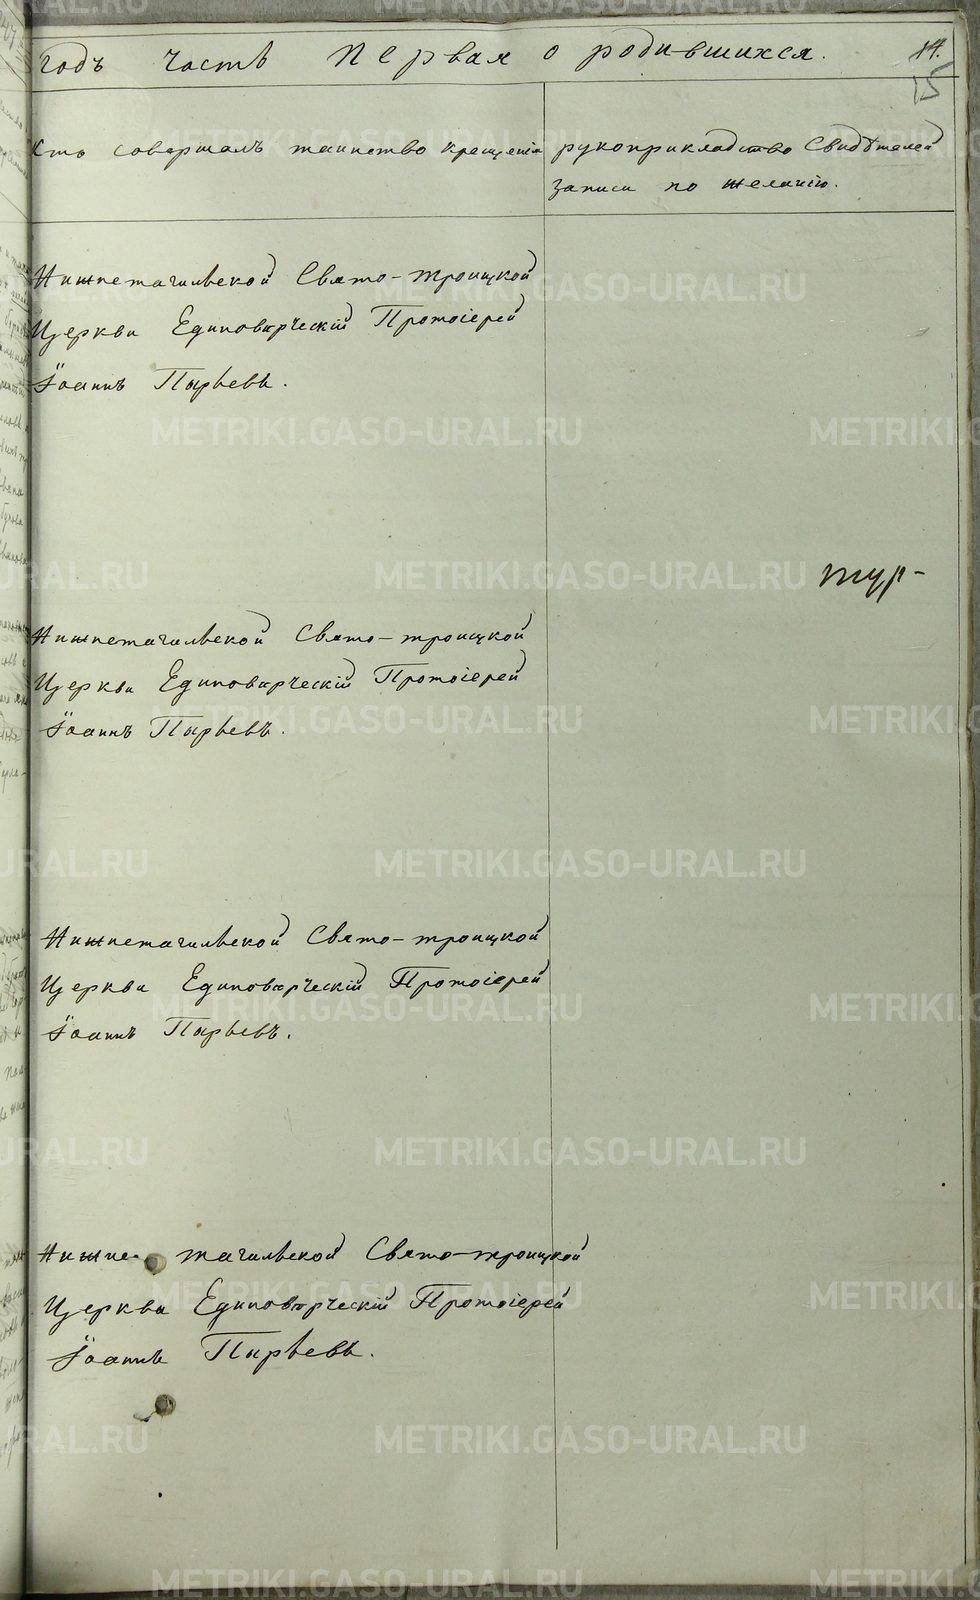 годъ часть первая о родившихся. 14.
15
Кто совершалъ таинство крещенія
рукоприкладство Свидѣтелей
записи по желанію.
Нижнетагильской Свято-Троицкой
Церкви Единовѣрческій Протоіерей
Іоаннъ Пырьевъ.
тур-
Нижнетагильской Свято-Троицкой
Церкви Единовѣрческій Протоіерей
Іоаннъ Пырьевъ.
Нижнетагильской Свято-Троицкой
Церкви Единовѣрческій Протоіерей
Іоаннъ Пырьевъ.
Нижне-тагильской Свято-Троицкой
Церкви Единовѣрческій Протоіерей
Іоаннъ Пырьевъ.
METRIKI.GASO-URAL.RU